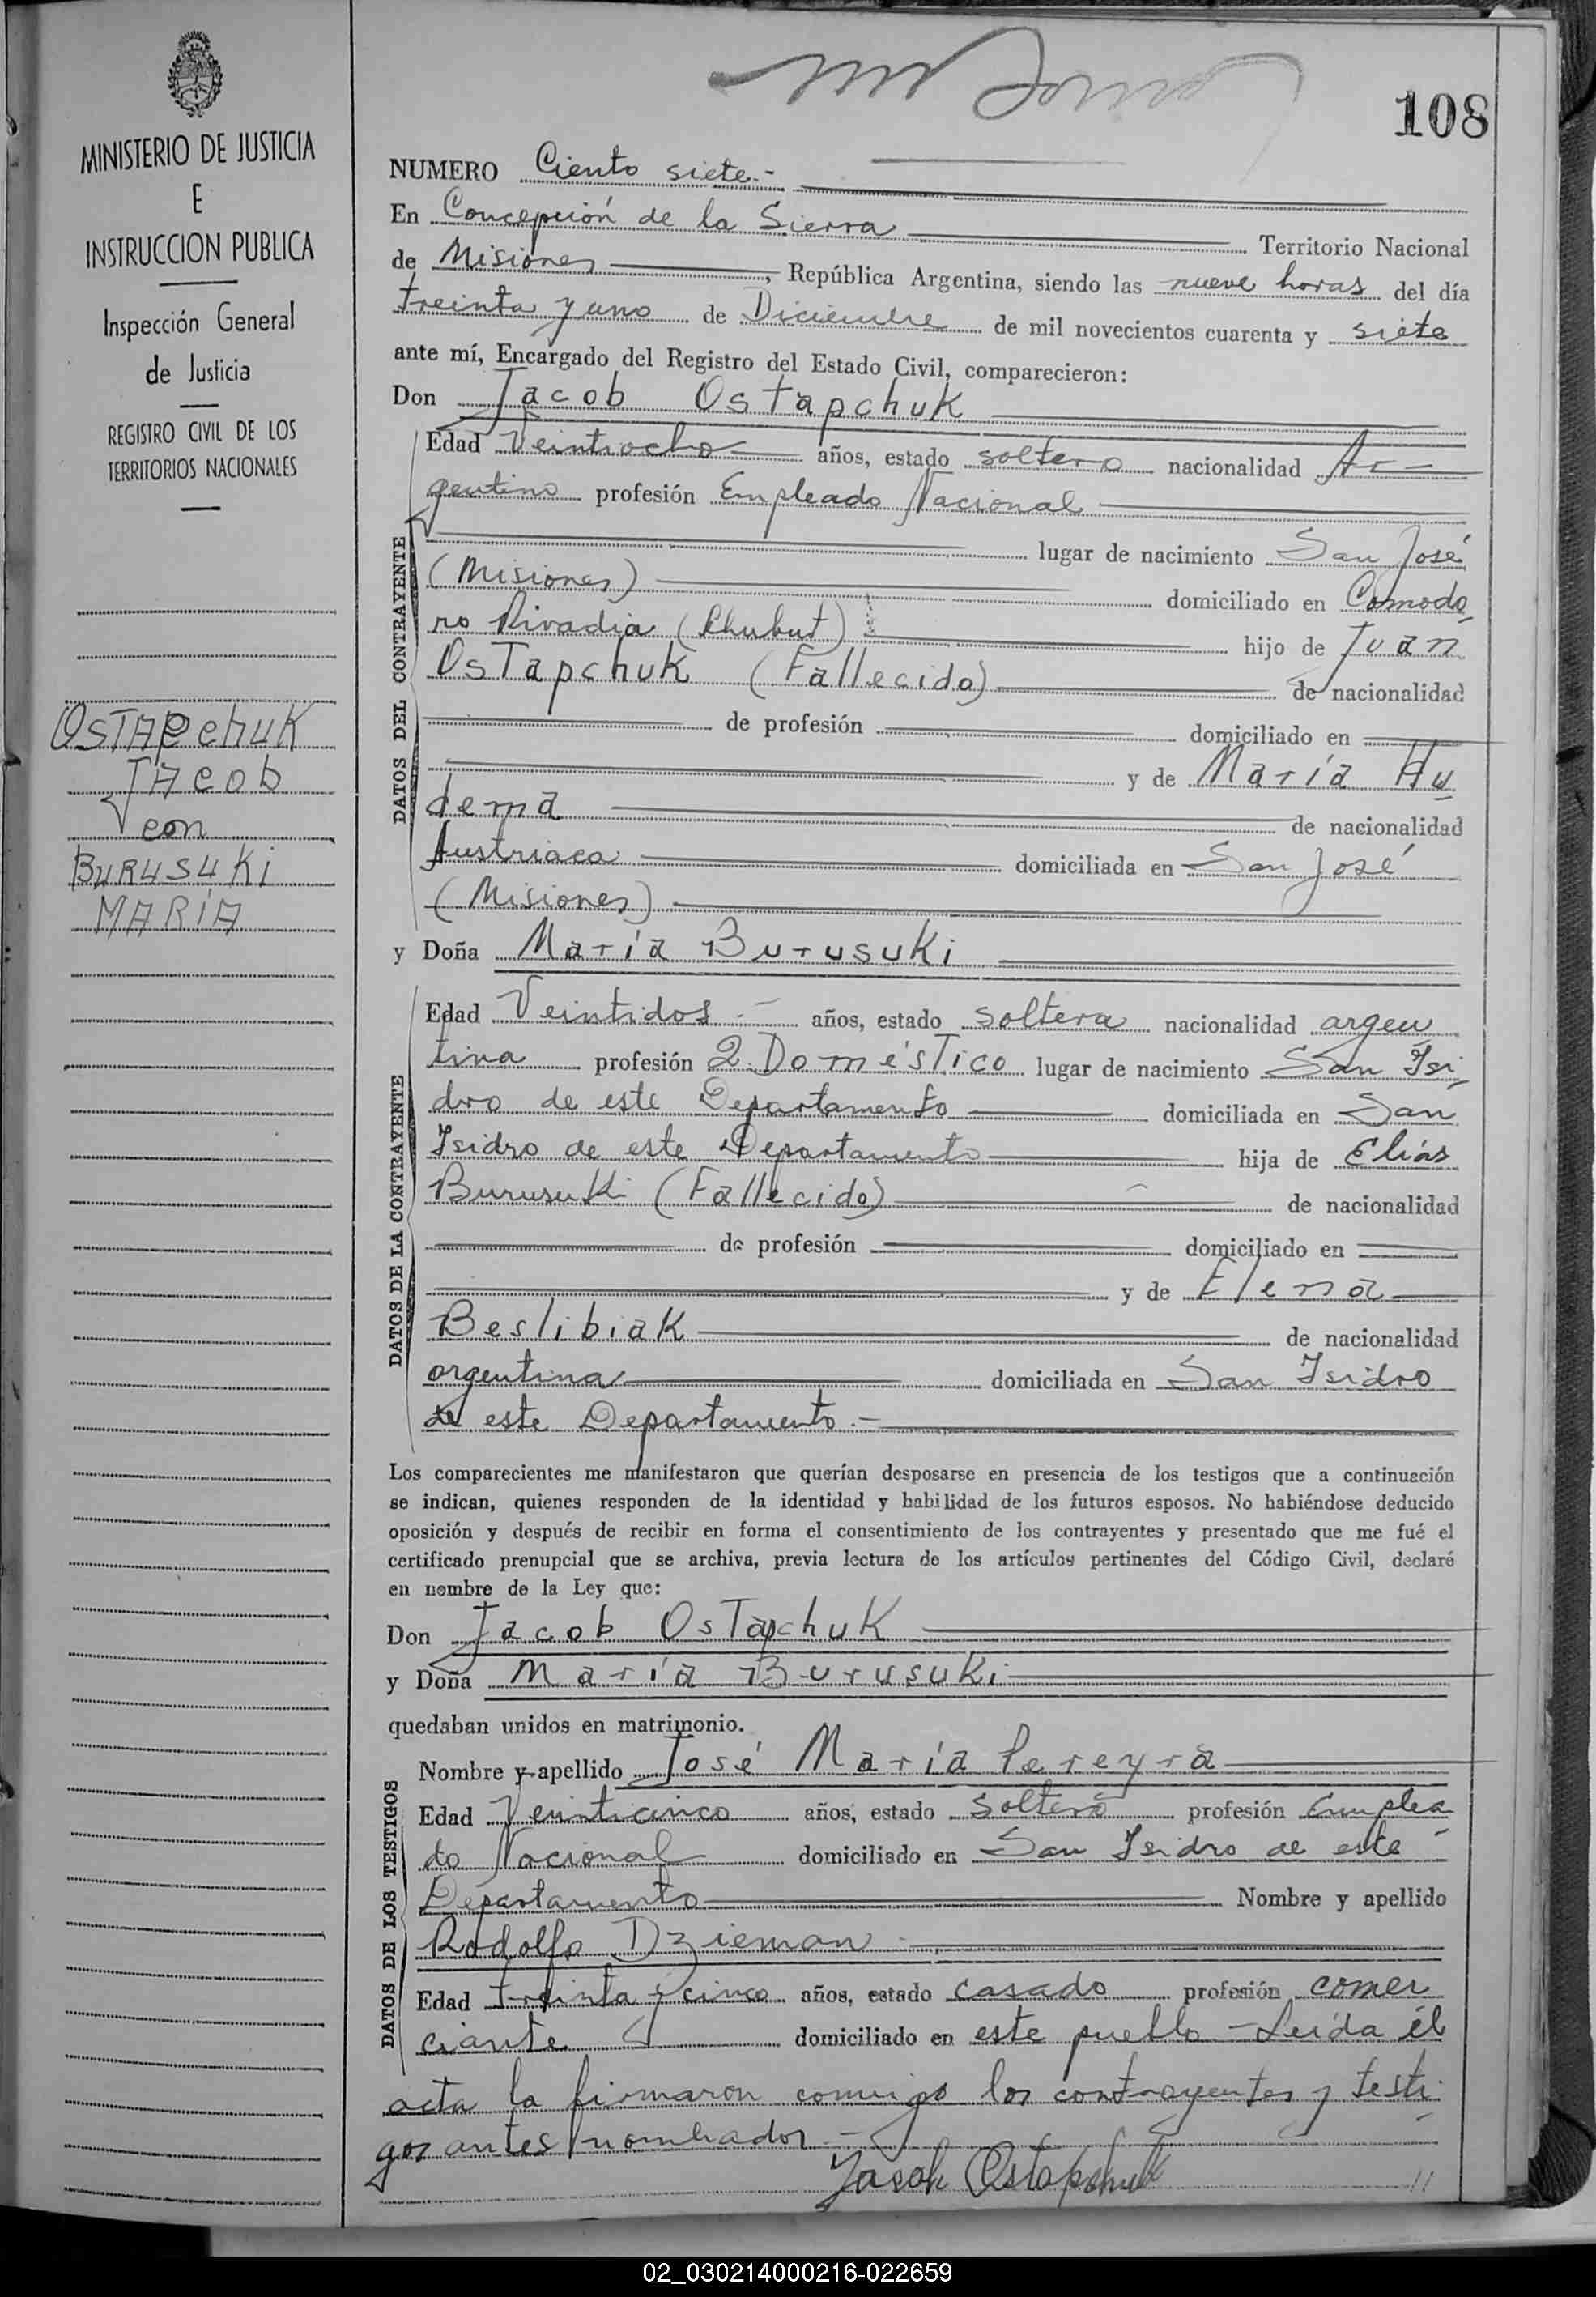 MINISTERIO DE JUSTICIA
E
INSTRUCCION PUBLICA
Inspección General
de Justicia
REGISTRO CIVIL DE LOS
TERRITORIOS NACIONALES
OSTAPchuK
JAcob
con
BURUSUKi
MARÍA
108
NUMERO Ciento siete.-
En Concepción de la Sierra Territorio Nacional
de Misiones, República Argentina, siendo las nueve horas del día
treinta y uno de Diciembre de mil novecientos cuarenta y siete
ante mí, Encargado del Registro del Estado Civil, comparecieron:
Don Jacob Ostapchuk
DATOS DEL CONTRAYENTE
Edad Veintiocho años, estado soltero nacionalidad Ar-
gentino profesión Empleado Nacional
lugar de nacimiento San José
(Misiones) domiciliado en Comodo
ro Rivadia (Chubut) hijo de Juan
Ostapchuk (Fallecido) de nacionalidad
de profesión domiciliado en
y de María Hu
dema de nacionalidad
Austriaca domiciliada en San José
(Misiones)
y Doña María Burusuki
DATOS DE LA CONTRAYENTE
Edad Veintidos.- años, estado soltera nacionalidad argen
tina profesión Q. Doméstico lugar de nacimiento San Isi-
dro de este Departamento domiciliada en San
Isidro de este Departamento hija de Elías
Burusuki (Fallecido) de nacionalidad
de profesión domiciliado en
y de Elena
Beslibiak de nacionalidad
argentina domiciliada en San Isidro
de este Departamento.-
Los comparecientes me manifestaron que querían desposarse en presencia de los testigos que a continuación
se indican, quienes responden de la identidad y habilidad de los futuros esposos. No habiéndose deducido
oposición y después de recibir en forma el consentimiento de los contrayentes y presentado que me fué el
certificado prenupcial que se archiva, previa lectura de los artículos pertinentes del Código Civil, declaré
en nombre de la Ley que:
Don Jacob Ostapchuk
y Doña María Burusuki
quedaban unidos en matrimonio.
DATOS DE LOS TESTIGOS
Nombre y apellido José María Pereyra
Edad Veinticinco años, estado soltero profesión Emplea
do Nacional domiciliado en San Isidro de este
Departamento Nombre y apellido
Rodolfo Dzieman
Edad treinta y cinco años, estado casado profesión comer
ciante domiciliado en este pueblo - Leída el
acta la firmaron conmigo los contrayentes y testi-
gos antes nombrados.-
Jacob Ostapchuk
02_030214000216-022659